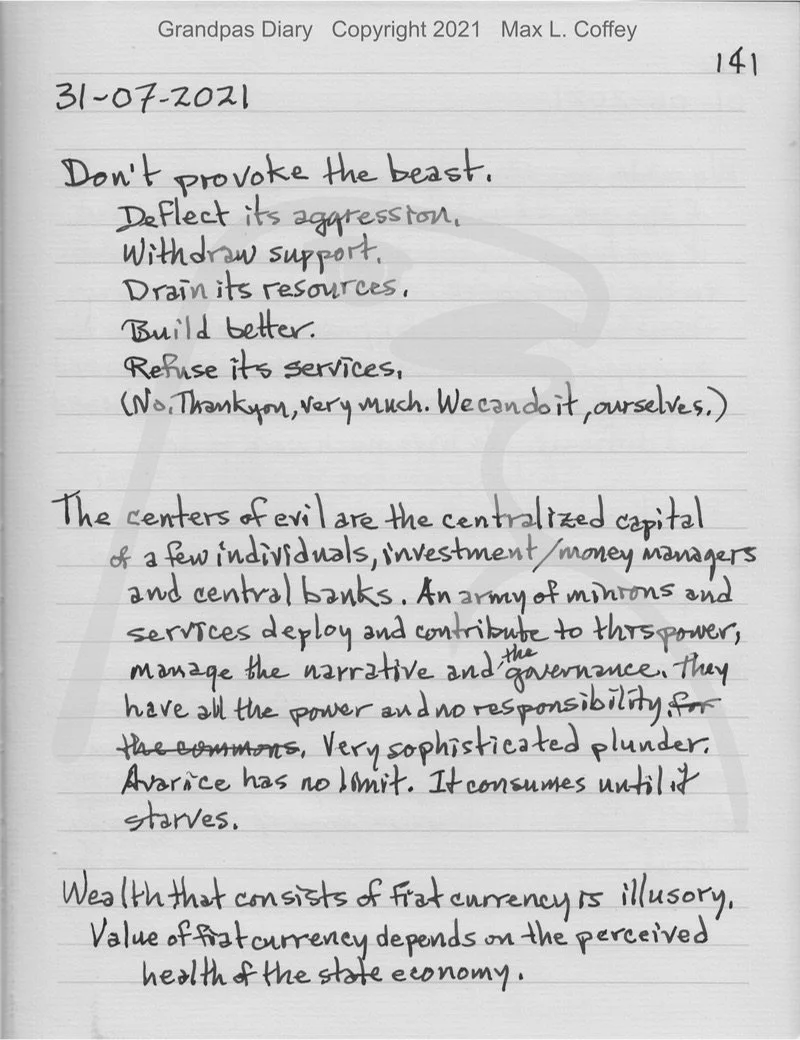 Grandpas Diary Copyright 2021 Max L. Coffey
141
31-07-2021
Don't provoke the beast.
Deflect its aggression.
Withdraw support.
Drain its resources.
Build better.
Refuse its services.
(No, Thankyou, very much. We can do it, ourselves.)
The centers of evil are the centralized capital
of a few individuals, investment/money managers
and central banks. An army of minions and
services deploy and contribute to this power,
manage the narrative and the governance. They
have all the power and no responsibility for
the commons. Very sophisticated plunder.
Avarice has no limit. It consumes until it
starves.
Wealth that consists of fiat currency is illusory.
Value of fiat currency depends on the perceived
health of the state economy.